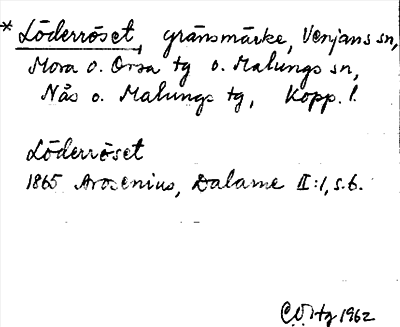 * Löderröset, gränsmärke, Venjans sn,
Mora o. Orsa tg o. Malungs sn,
Nås o. Malungs tg, Kopp. l.
Löderröset
1865 Arosenius, Dalarne II:1, s. 6.
1962